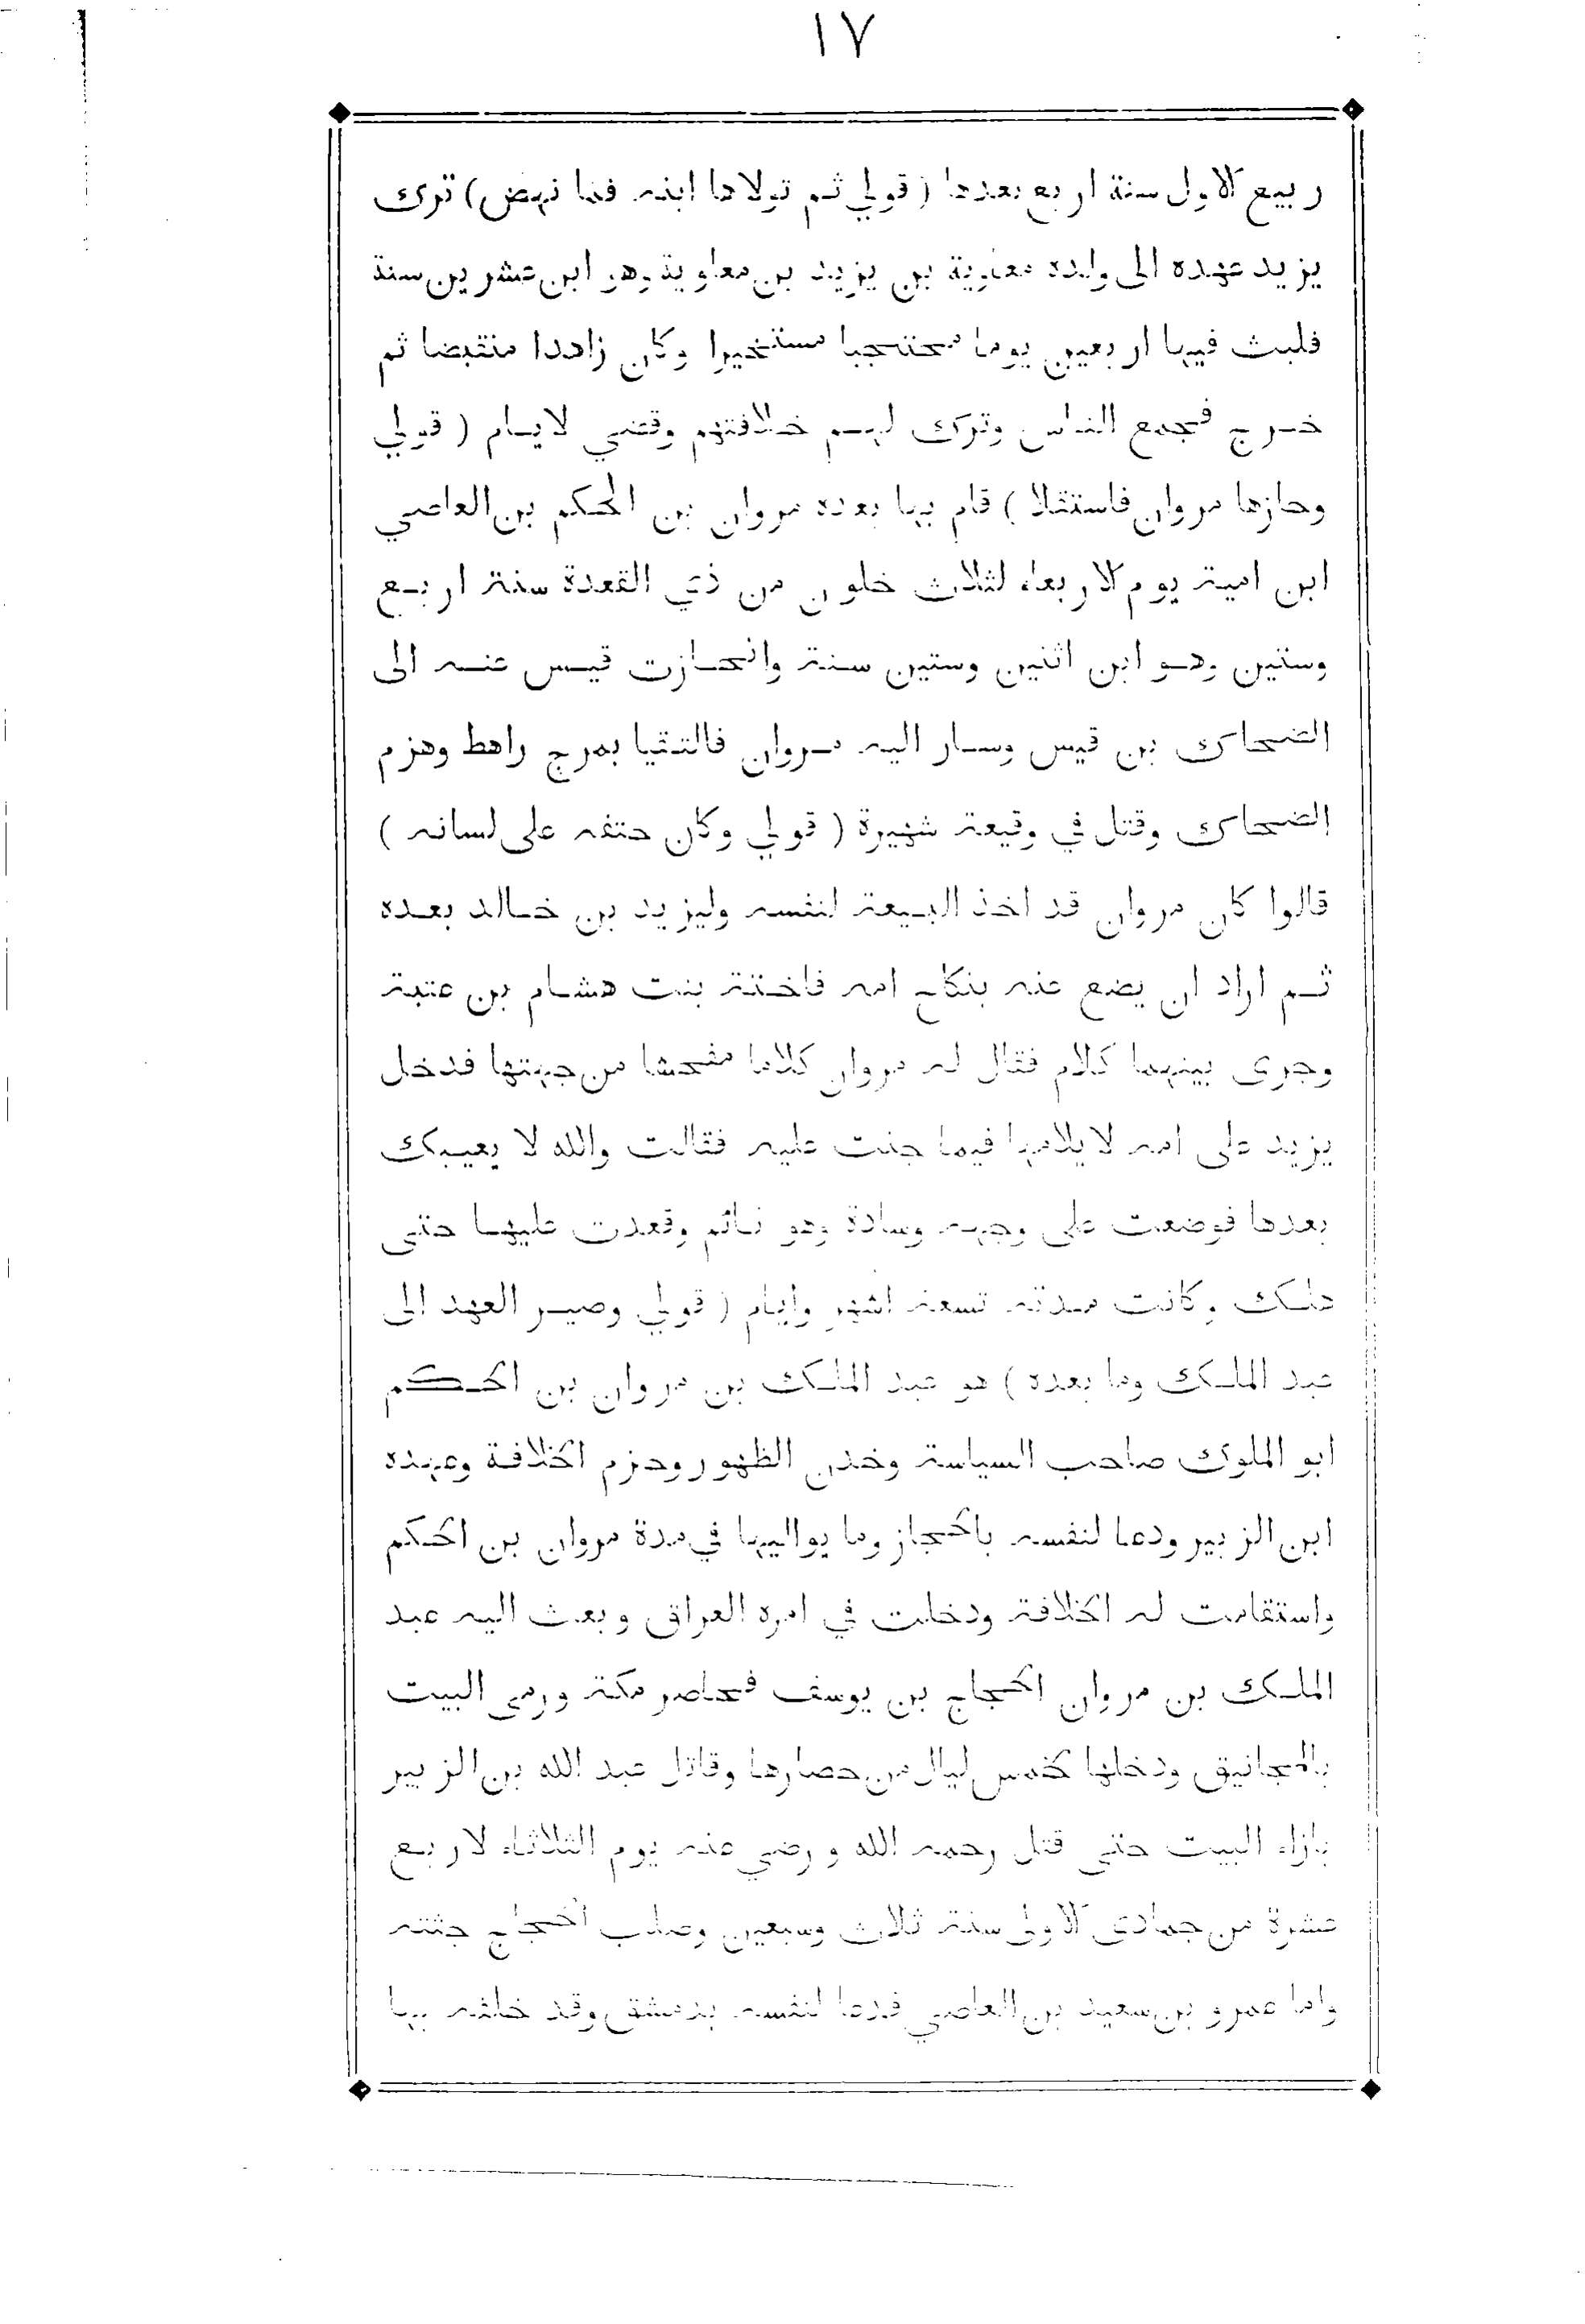 ١٧
ربيع الاول سنة اربع بعدها (قولي ثم تولاها ابنه فما نهض) ترك
يزيد عهده الى ولده معاوية بن يزيد بن معاوية وهو ابن عشرين سنة
فلبث فيها اربعين يوما محتجبا مستخيرا وكان زاهدا منقبضا ثم
خرج فجمع الناس وترك لهم خلافتهم وقضي لايام (قولي
وحازها مروان فاستقلا) قام بها بعده مروان بن الحكم بن العاصي
ابن امية يوم الاربعاء لثلاث خلون من ذي القعدة سنة اربع
وستين وهو ابن اثنين وستين سنة وانحازت قيس عنه الى
الضحاك بن قيس وسار اليه مروان فالتقيا بمرج راهط وهزم
الضحاك وقتل في وقيعة شهيرة (قولي وكان حتفه على لسانه)
قالوا كان مروان قد اخذ البيعة لنفسه وليزيد بن خالد بعده
ثم اراد ان يضع عنه بنكاح امه فاختة بنت هشام بن عتبة
وجرى بينهما كلام فقال له مروان كلاما مفحشا من جهتها فدخل
يزيد على امه لايلامها فيما جنت عليه فقالت والله لا يعيبك
بعدها فوضعت على وجهه وسادة وهو نائم وقعدت عليها حتى
هلك وكانت مدته تسعة اشهر وايام (قولي وصير العهد الى
عبد الملك وما بعده) هو عبد الملك بن مروان بن الحكم
ابو الملوك صاحب السياسة وخدن الظهور وحزم الخلافة وعهده
ابن الزبير ودعا لنفسه بالحجاز وما يواليها في مدة مروان بن الحكم
واستقامت له الخلافة ودخلت في امره العراق وبعث اليه عبد
الملك بن مروان الحجاج بن يوسف فحاصر مكة ورمى البيت
بالمجانيق ودخلها لخمس ليال من حصارها وقاتل عبد الله بن الزبير
بازاء البيت حتى قتل رحمه الله ورضي عنه يوم الثلاثاء لاربع
عشرة من جمادى الاولى سنة ثلاث وسبعين وصلب الحجاج جثته
واما عمرو بن سعيد بن العاصي فدعا لنفسه بدمشق وقد خلفه بها